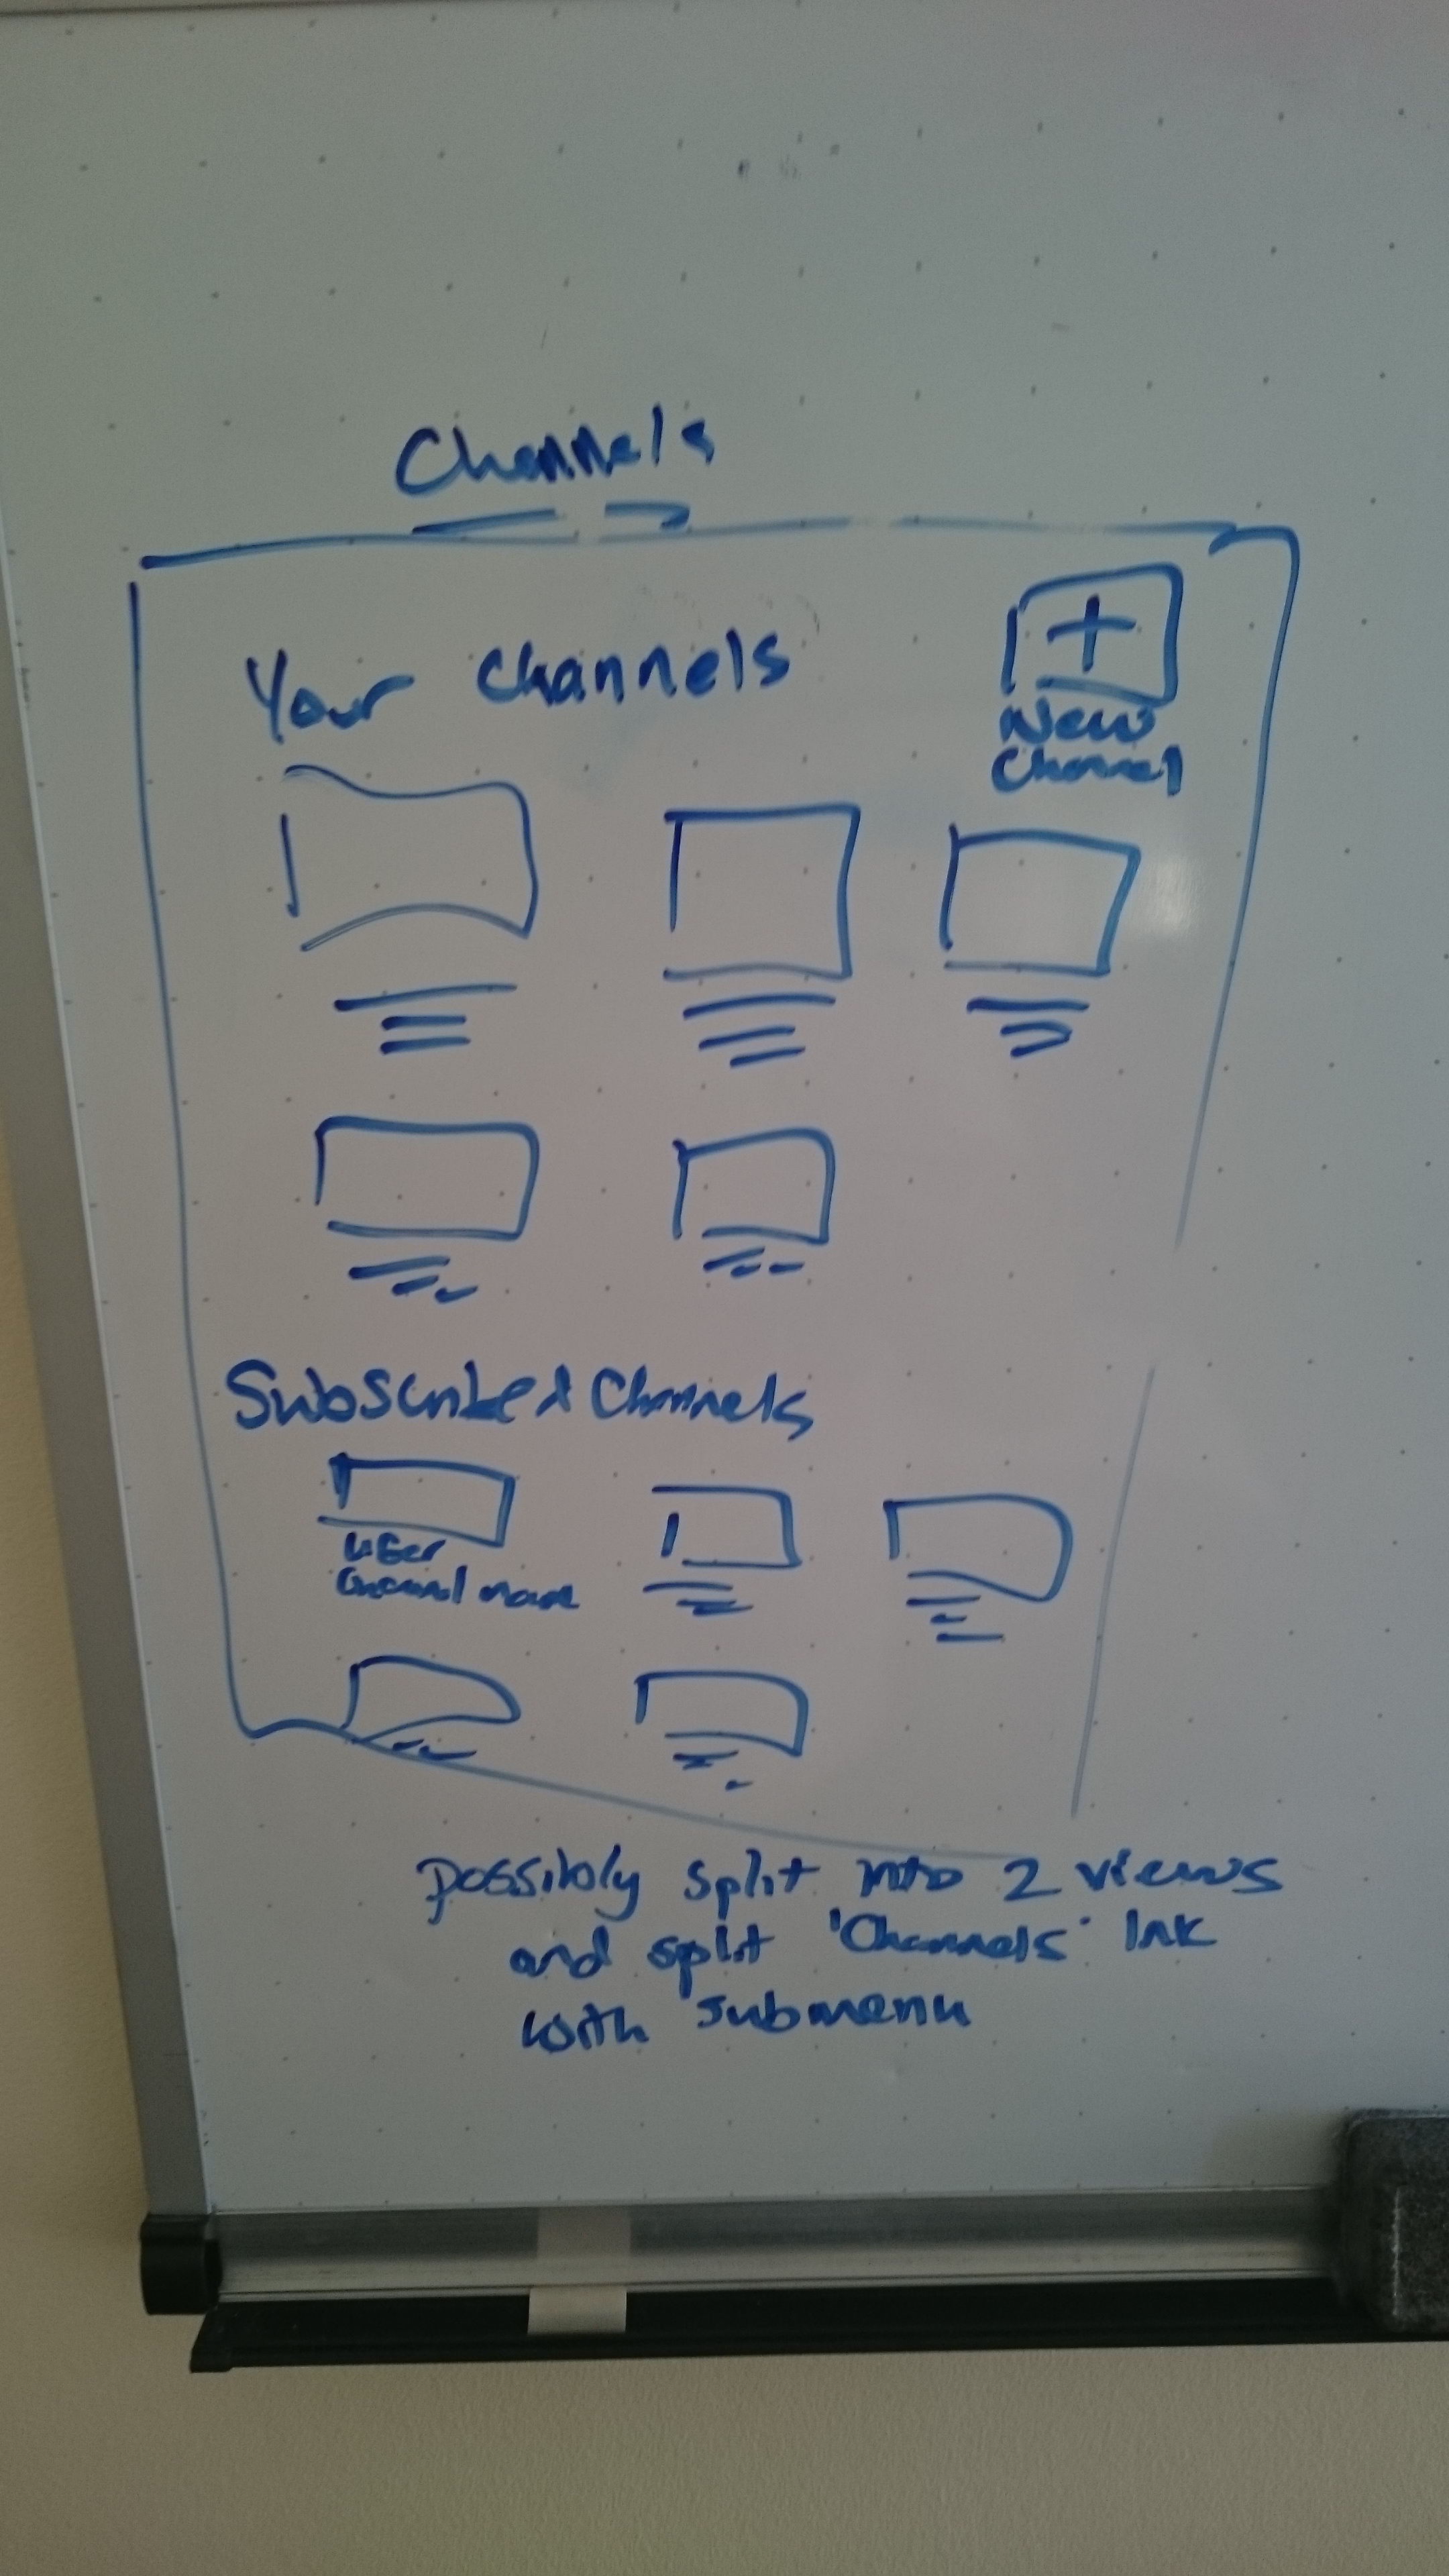 Channels
Your Channels
+
New
Channel
Subscribed Channels
User
Channel name
possibly split into 2 views
and split 'Channels' link
with submenu